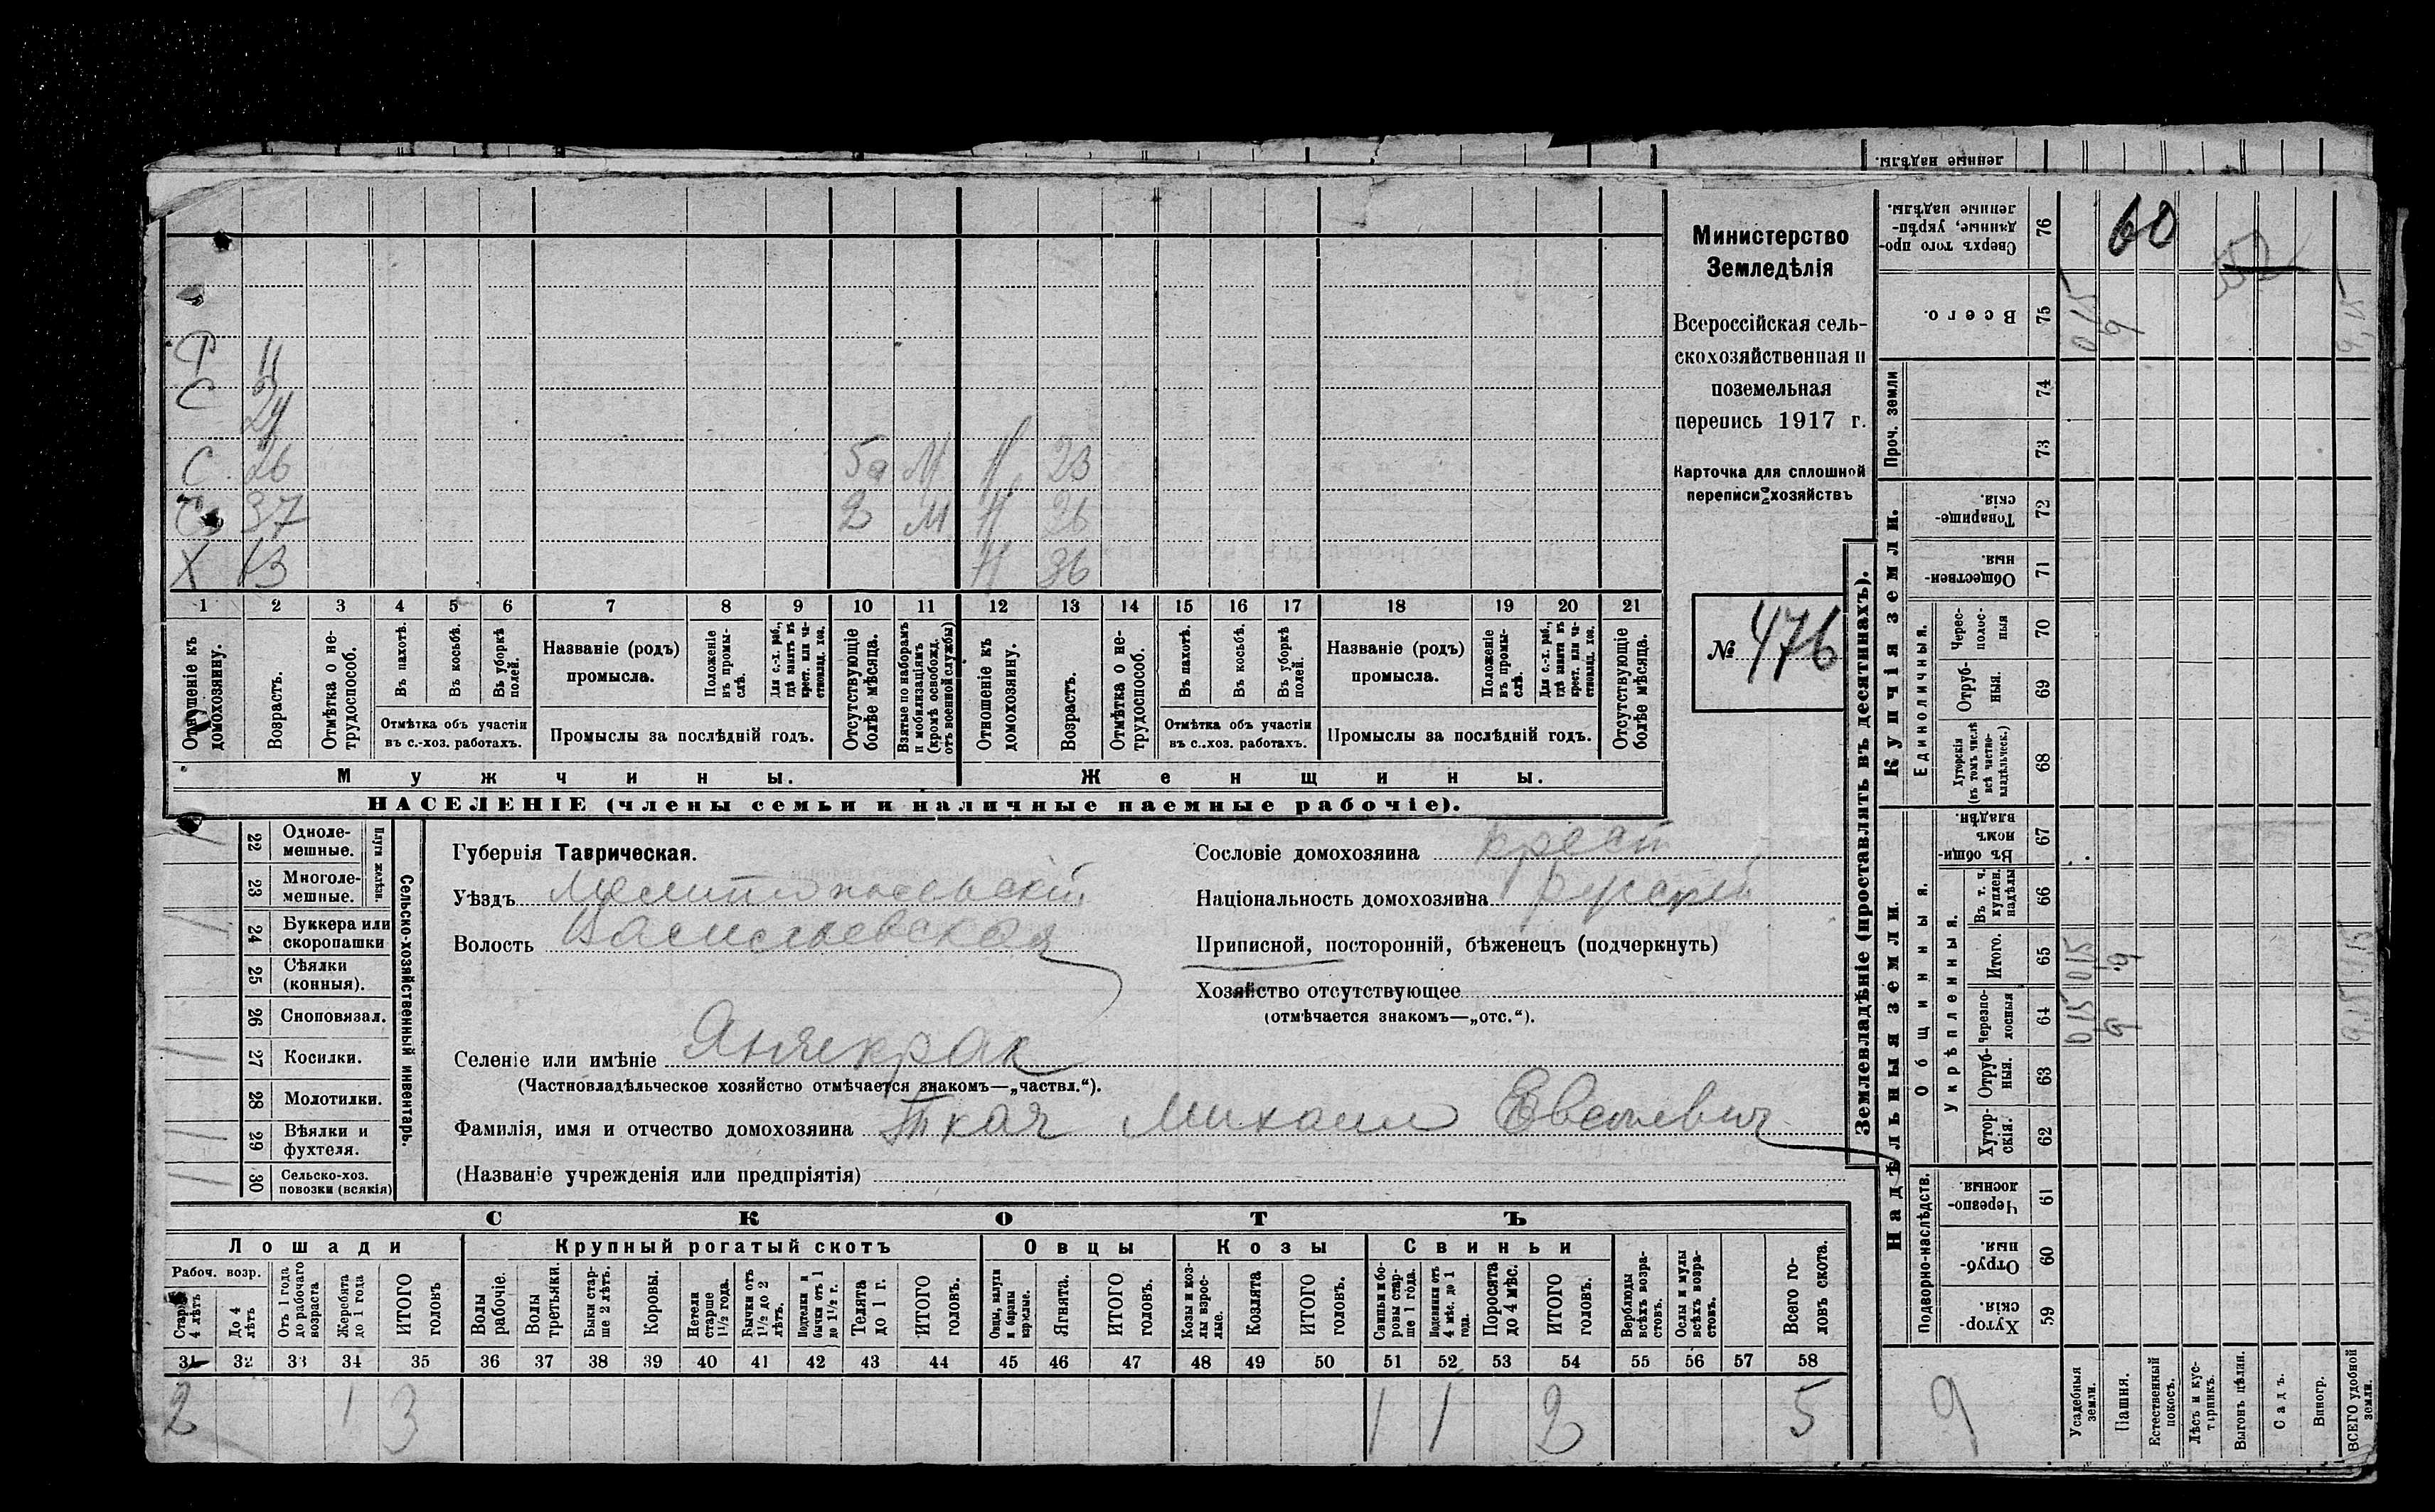 ленные надѣлы.
Министерство
Земледѣлія
Всероссійская сель-
скохозяйственная и
поземельная
перепись 1917 г.
Карточка для сплошной
переписи хозяйствъ
№ 476
Р 11
С 24
С 26 5а М Н 23
С 37 2 М Н 26
Х 13 Н 36
1 2 3 4 5 6 7 8 9 10 11 12 13 14 15 16 17 18 19 20 21
Отношеніе къ домохозяину.
Возрастъ.
Отмѣтка о не-трудоспособ.
Въ пахотѣ.
Въ косьбѣ.
Въ уборкѣ полей.
Отмѣтка объ участіи
въ с.-хоз. работахъ.
Названіе (родъ)
промысла.
Положеніе въ промы-слѣ.
Для с.-х. раб., гдѣ занятъ въ крест. или ча-стновлад. хоз.
Промыслы за послѣдній годъ.
Отсутствующіе болѣе мѣсяца.
Взятые по наборамъ и мобилизаціямъ (кромѣ освобожд. отъ военной службы)
Отношеніе къ домохозяину.
Возрастъ.
Отмѣтка о не-трудоспособ.
Въ пахотѣ.
Въ косьбѣ.
Въ уборкѣ полей.
Отмѣтка объ участіи
въ с..хоз. работахъ.
Названіе (родъ)
промысла.
Положеніе въ промы-слѣ.
Для с.-х. раб., гдѣ занята въ крест. или ча-стновлад. хоз.
Промыслы за послѣдній годъ.
Отсутствующіе болѣе мѣсяца.
Мужчины. Женщины.
НАСЕЛЕНІЕ (члены семьи и наличные наемные рабочіе).
Сельско-хозяйственный инвентарь.
Плуги желѣзн.
1 22 Одноле-мешные.
1 23 Многоле-мешные.
1 24 Буккера или скоропашки
25 Сѣялки (конныя).
26 Сноповязал.
1 27 Косилки.
28 Молотилки.
1 29 Вѣялки и фухтеля.
1 30 Сельско-хоз. повозки (всякія)
Губернія Таврическая.
Уѣздъ Мелитопольскій
Волость Васильевская
Селеніе или имѣніе Янчекрак
(Частновладѣльческое хозяйство отмѣчается знакомъ—„частвл.“).
Фамилія, имя и отчество домохозяина Ткач Михаил Евсеевич
(Названіе учрежденія или предпріятія)
Сословіе домохозяина крест
Національность домохозяина русскій
Приписной, посторонній, бѣженецъ (подчеркнуть)
Хозяйство отсутствующее
(отмѣчается знакомъ—„отс.“).
СКОТЪ
Лошади Крупный рогатый скотъ Овцы Козы Свиньи
Рабоч. возр.
Старше 4 лѣтъ
До 4 лѣтъ
Отъ 1 года до рабочаго возраста
Жеребята до 1 года
ИТОГО головъ
Волы рабочіе.
Волы третьяки.
Быки стар-ше 2 лѣтъ.
Коровы.
Нетели старше 1½ года.
Бычки отъ 1½ до 2 лѣтъ.
Подтелки и бычки отъ 1 до 1½ г.
Телята до 1 г.
ИТОГО головъ.
Овцы, валухи и бараны взрослые.
Ягнята.
ИТОГО головъ.
Козы и коз-лы взрос-лые.
Козлята
ИТОГО головъ.
Свиньи и бо-ровы стар-ше 1 года.
Подсвинки отъ 4 мѣс. до 1 года.
Поросята до 4 мѣс.
ИТОГО головъ.
Верблюды всѣхъ возра-стовъ.
Ослы и мулы всѣхъ возра-стовъ.
Всего го-ловъ скота.
31 32 33 34 35 36 37 38 39 40 41 42 43 44 45 46 47 48 49 50 51 52 53 54 55 56 57 58
2 1 3 1 1 2 5
Землевладѣніе (проставлять въ десятинахъ).
Купчія земли.
Надѣльныя земли.
Сверхъ того про-данные, укрѣп-ленные надѣлы. 76 60
Всего. 75 0,15 9 9,15
Проч. земли
74
73
Товарище-скія. 72
Обществен-ныя. 71
Единоличныя.
Черес-полос-ныя 70
Отруб-ныя. 69
Хуторскія (въ томъ числѣ всѣ частно-владѣльческ.) 68
Общинныя.
Въ общин-номъ владѣн. 67
Укрѣпленныя.
Въ т. ч. куплен. надѣлы 66
Итого. 65 0,15 9 9,15
Черезпо-лосныя 64 0,15 9 9,15
Отруб-ныя. 63
Хутор-скія. 62
Подворно-наслѣдств.
Черезпо-лосныя. 61
Отруб-ныя. 60
Хутор-скія. 59
9
Усадебныя земли.
Пашня.
Естественный покосъ.
Лѣсъ и кус-тарникъ.
Выгонъ цѣлин.
Садъ.
Виногр.
ВСЕГО удобной земли.